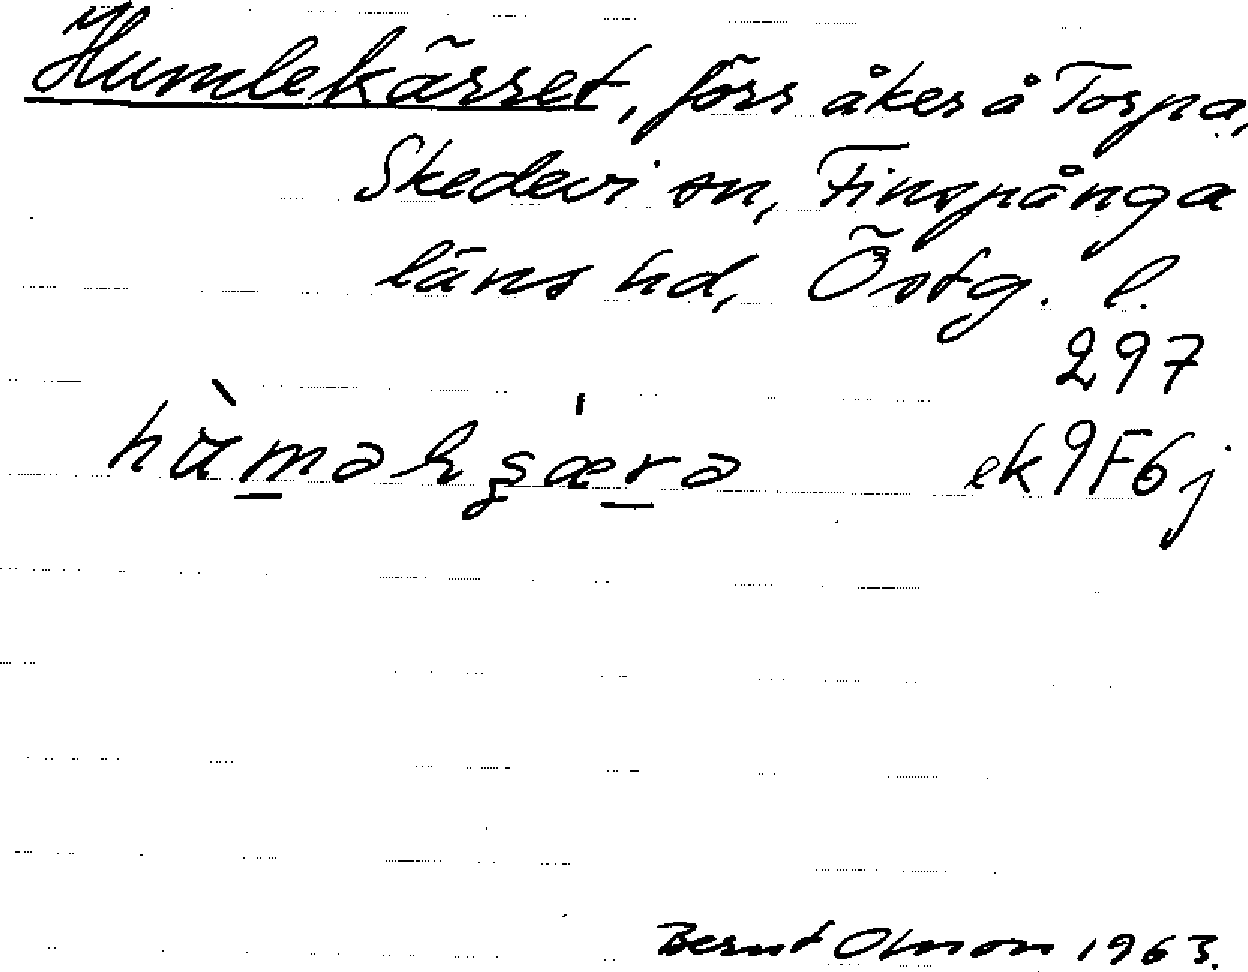 Humlekärret, förr åker å Torpa,
Skedevi sn, Finspånga
läns hd, Östg. l.
297
hàməlçæ̀rə ek 9F6j
Bernt Olsson 1963.